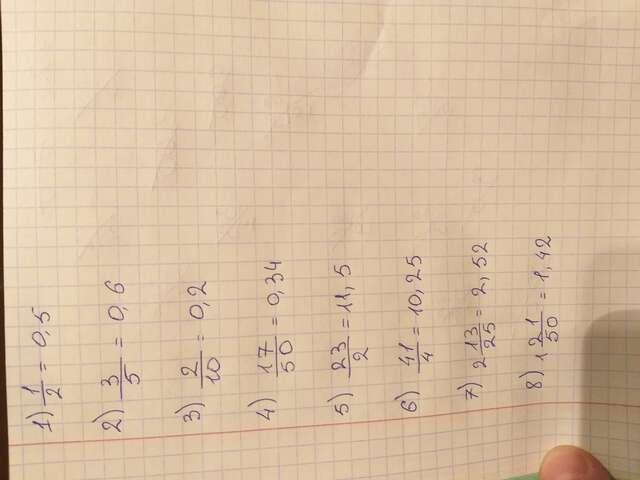 1) 1/2 = 0,5
2) 3/5 = 0,6
3) 2/10 = 0,2
4) 17/50 = 0,34
5) 23/2 = 11,5
6) 41/4 = 10,25
7) 2 13/25 = 2,52
8) 1 21/50 = 1,42